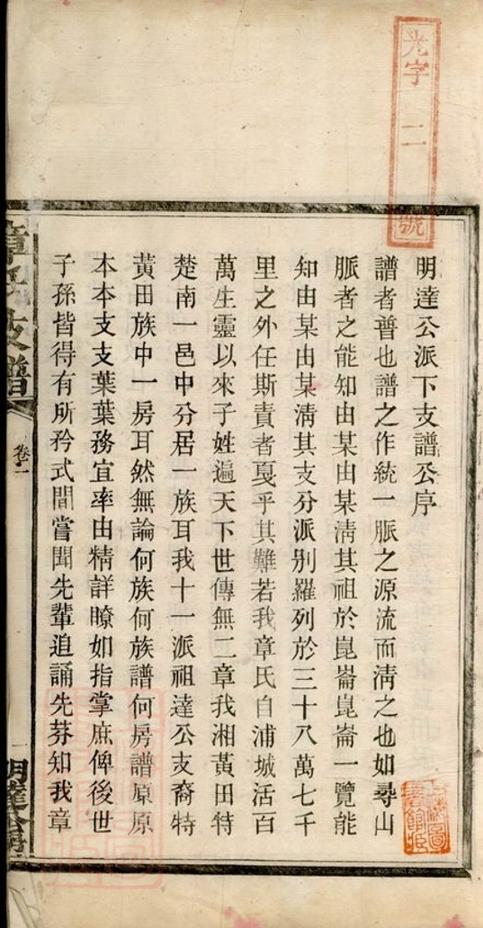 光字二號
明達公派下支譜公序
譜者普也譜之作統一脈之源流而淸之也如尋山
脈者之能知由某由某淸其祖於崑崙崑崙一覽能
知由某由某淸其支分派別羅列於三十八萬七千
里之外任斯責者戞乎其難若我章氏自浦城活百
萬生靈以來子姓遍天下世傳無二章我湘黃田特
楚南一邑中分居一族耳我十一派祖達公支裔特
黃田族中一房耳然無論何族何族譜何房譜原原
本本支支葉葉務宜率由精詳瞭如指掌庶俾後世
子孫皆得有所矜式間嘗聞先輩追誦先莽知我章
章氏支譜
卷一
一
明達公房